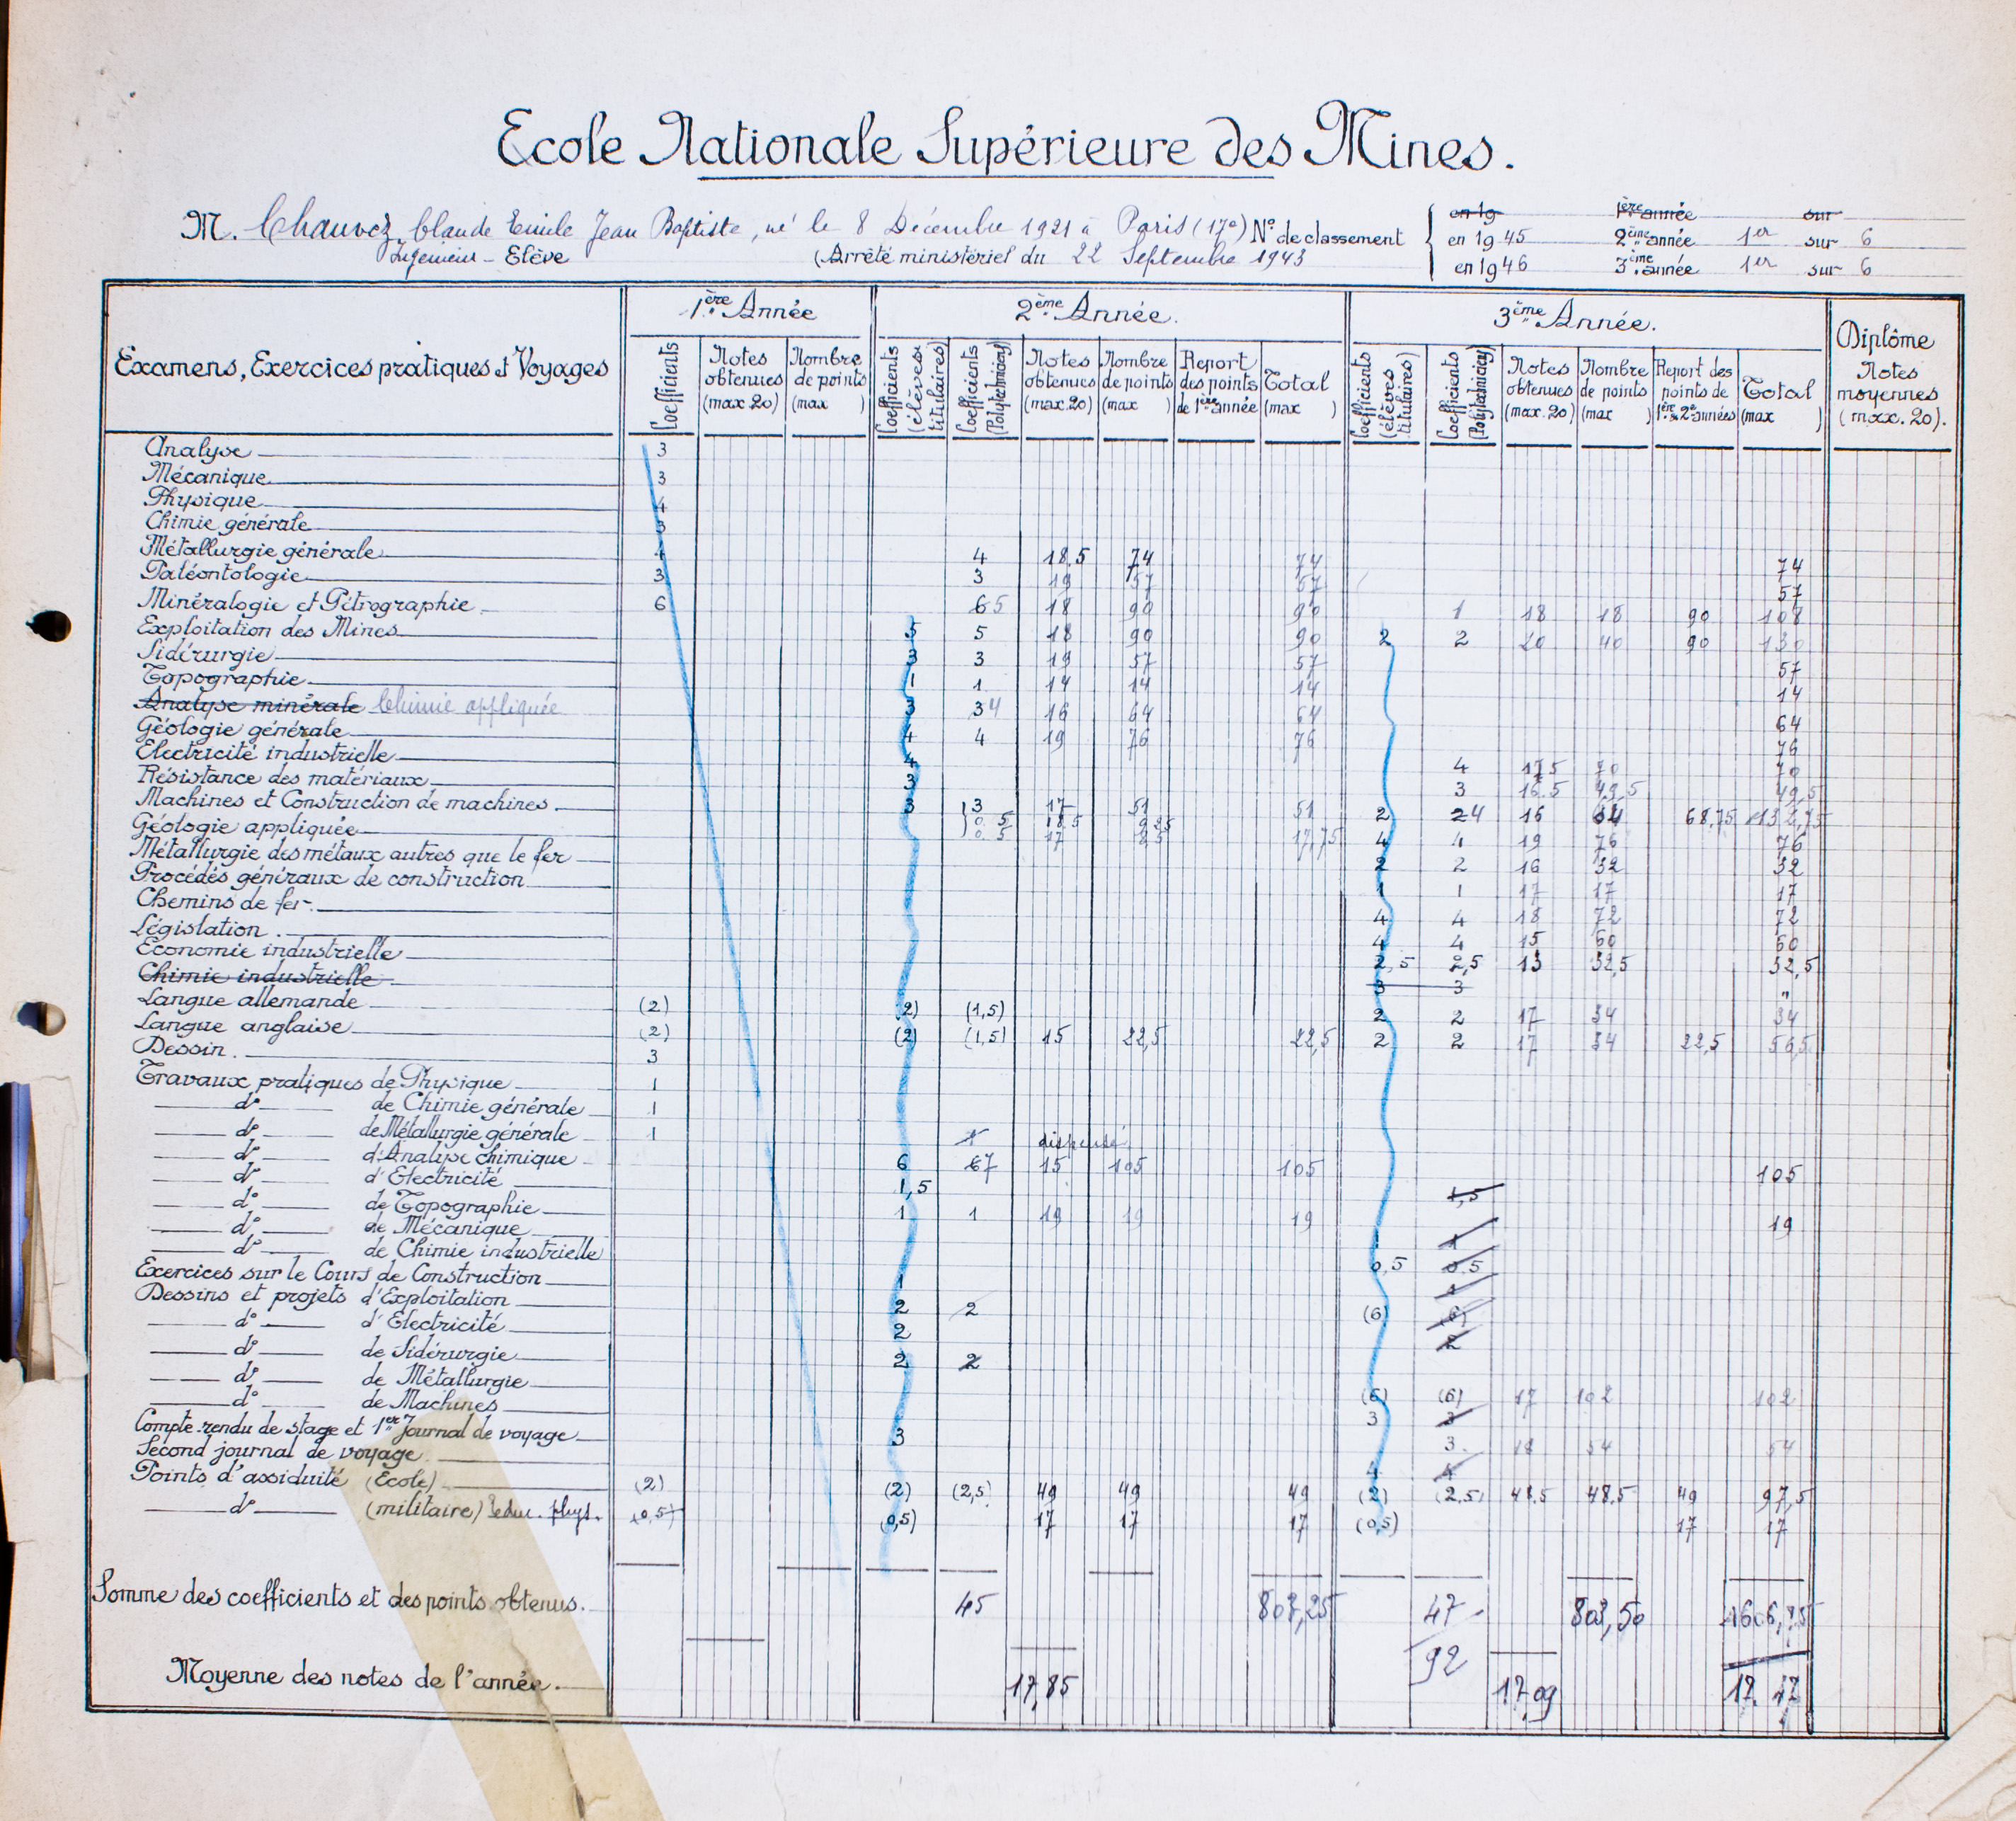 Ecole Nationale Supérieure des Mines.
M. Chauvez, Claude Emile Jean Baptiste, né le 8 Décembre 1921 à Paris (17e) N° de classement
en 19 1ère année sur
en 1945 2ème année 1er sur 6
en 1946 3ème année 1er sur 6
Ingénieur-Elève (Arrêté ministériel du 22 Septembre 1943
Examens, Exercices pratiques et Voyages 1ère Année 2ème Année. 3ème Année. Diplôme Notes moyennes (max. 20).
Coefficients Notes obtenues (max. 20) Nombre de points (max )
Coefficients (élèves titulaires) Coefficients (Polytechniciens) Notes obtenues (max. 20) Nombre de points (max ) Report des points de 1ère année Total (max )
Coefficients (élèves titulaires) Coefficients (Polytechniciens) Notes obtenues (max. 20) Nombre de points (max ) Report des points de 1ère & 2e années Total (max )
Analyse 3
Mécanique 3
Physique 4
Chimie générale 3
Métallurgie générale 4 4 18,5 74 74 74
Paléontologie 3 3 19 57 57 57
Minéralogie et Pétrographie 6 6 5 18 90 90 1 18 18 90 108
Exploitation des Mines 5 5 18 90 90 2 2 20 40 90 130
Sidérurgie 3 3 19 57 57 57
Topographie 1 1 14 14 14 14
Analyse minérale Chimie appliquée 3 3 4 16 64 64 64
Géologie générale 4 4 19 76 76 76
Electricité industrielle 4 4 17,5 70 70
Résistance des matériaux 3 3 16.5 49,5 49,5
Machines et Construction de machines 3 3 17 51 51 2 2 4 16 64 68,75 132,75
0.5 18,5 9,25
0.5 17 8,5 17,75
Géologie appliquée 4 4 19 76 76
Métallurgie des métaux autres que le fer 2 2 16 32 32
Procédés généraux de construction 1 1 17 17 17
Chemins de fer 4 4 18 72 72
Législation 4 4 15 60 60
Economie industrielle 2,5 2,5 13 32,5 32,5
Chimie industrielle 3 3 "
Langue allemande (2) (2) (1,5) 2 2 17 34 34
Langue anglaise (2) (2) (1,5) 15 22,5 22,5 2 2 17 34 22,5 56,5
Dessin 3
Travaux pratiques de Physique 1
d° de Chimie générale 1
d° de Métallurgie générale 1 1 dispensé
d° d'Analyse chimique 6 6 7 15 105 105 105
d° d'Electricité 1,5 1,5
d° de Topographie 1 1 19 19 19 19
d° de Mécanique 1 1
d° de Chimie industrielle 0,5 0.5
Exercices sur le Cours de Construction 1 1
Dessins et projets d'Exploitation 2 2 (6) (6)
d° d'Electricité 2 2
d° de Sidérurgie 2 2
d° de Métallurgie (6) (6) 17 102 102
d° de Machines 3 3
Compte-rendu de stage et 1er Journal de voyage 3 3. 18 54 54
Second journal de voyage 4 4
Points d'assiduité (Ecole) (2) (2) (2,5) 49 49 49 (2) (2,5) 48,5 48,5 49 97,5
d° (militaire) Educ. phys. (0,5) (0,5) 17 17 17 (0,5) 17 17
Somme des coefficients et des points obtenus. 45 803,25 47 803,50 1606,75
92
Moyenne des notes de l'année. 17,85 17,09 17,47